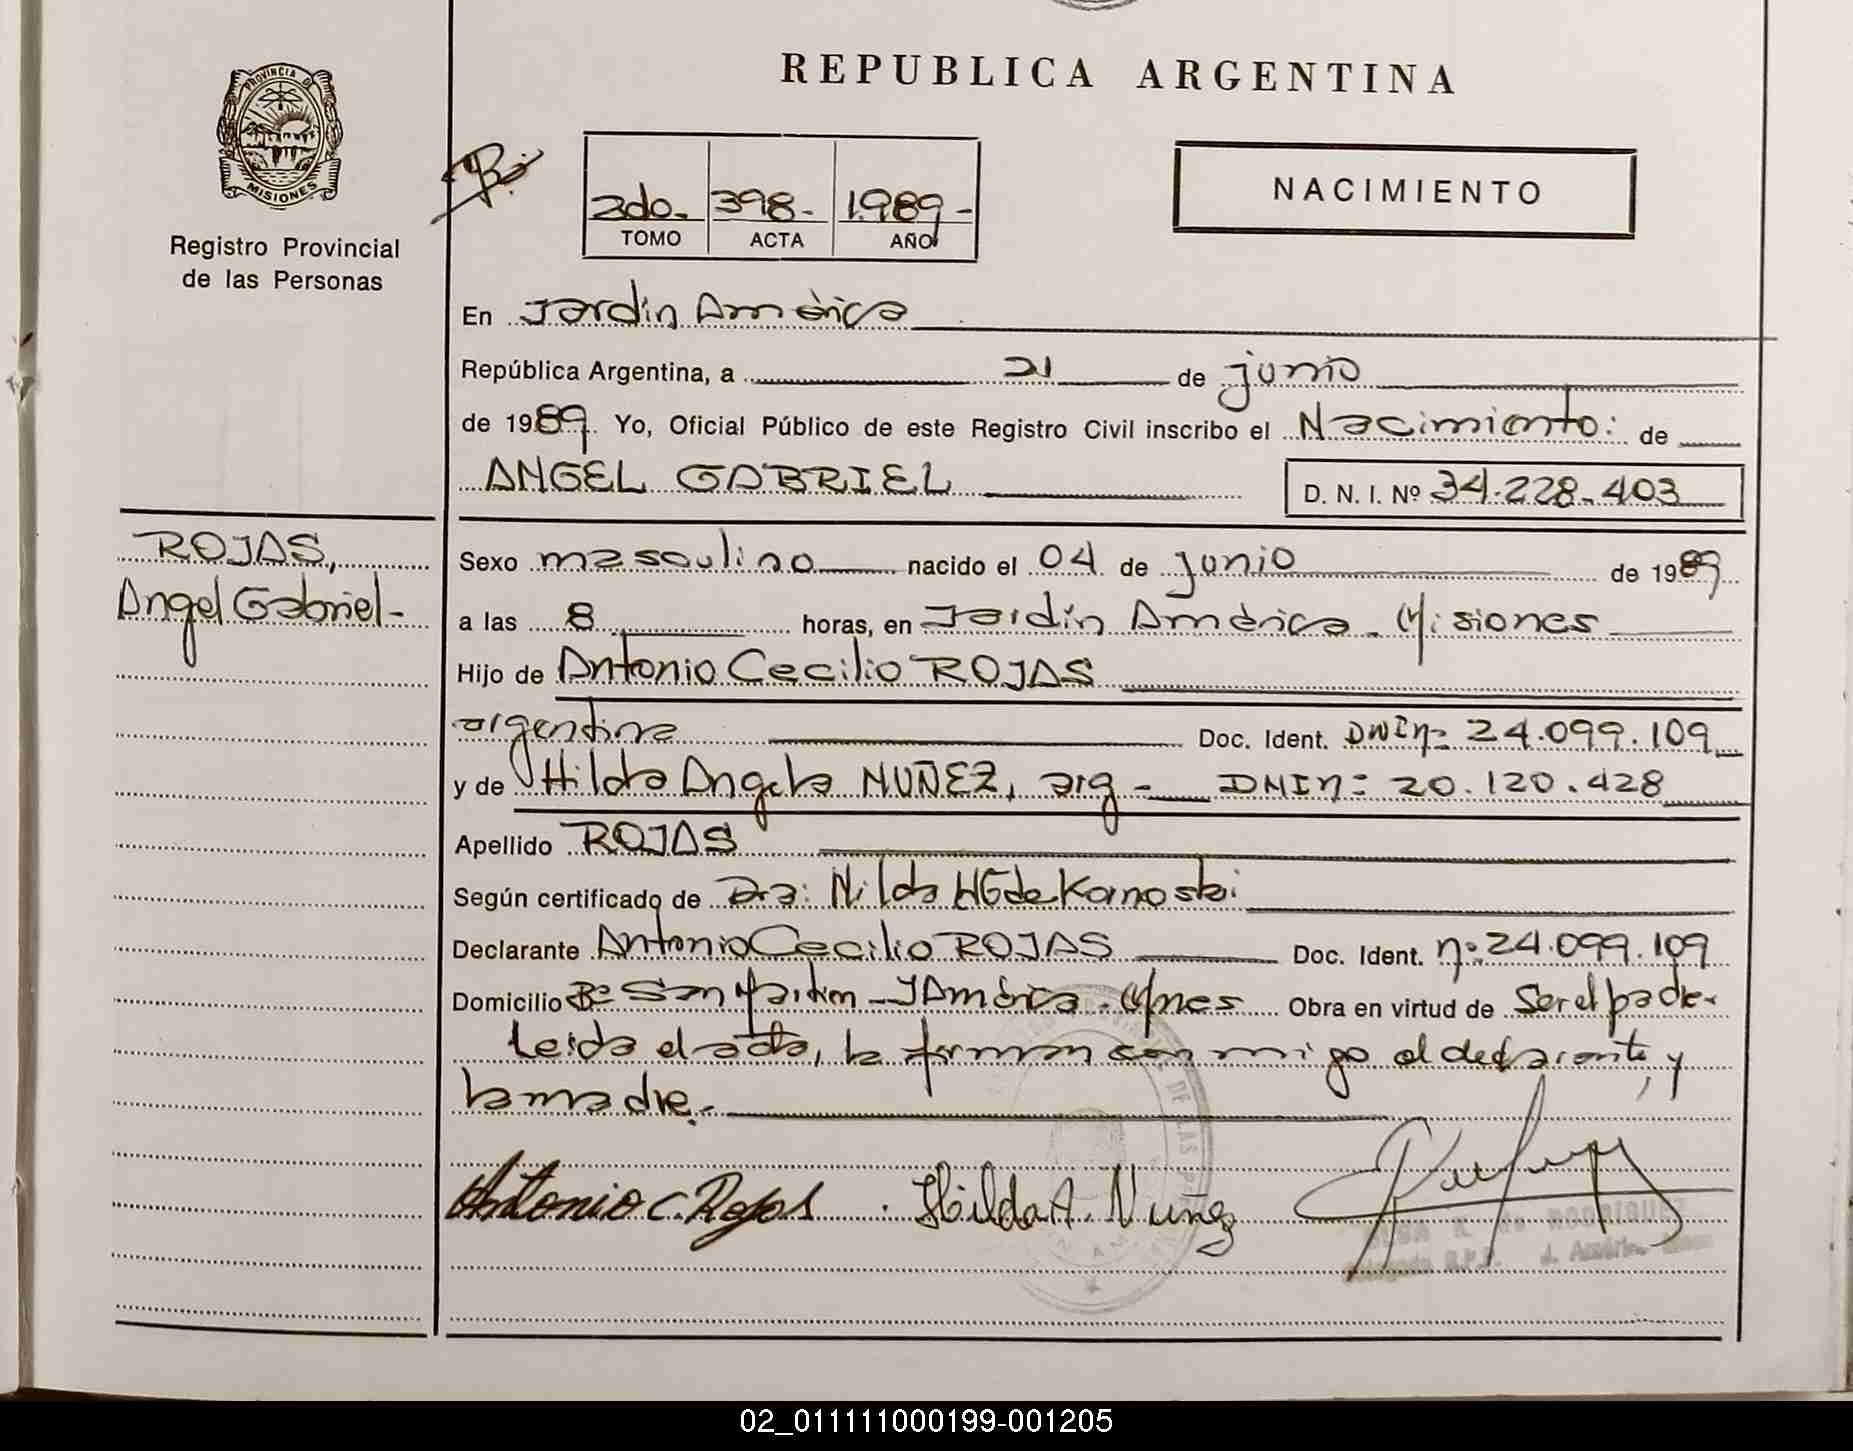 REPUBLICA ARGENTINA
PROVINCIA D
MISIONES
Registro Provincial
de las Personas
2do. 398- 1.989-
TOMO ACTA AÑO
NACIMIENTO
En Jardín América
República Argentina, a 21 de junio
de 1989. Yo, Oficial Público de este Registro Civil inscribo el Nacimiento: de
ANGEL GABRIEL D. N. I. Nº 34.228.403
ROJAS,
Angel Gabriel-
Sexo masculino nacido el 04 de junio de 1989
a las 8 horas, en Jardín América - Misiones
Hijo de Antonio Cecilio ROJAS
argentina Doc. Ident. DNIn= 24.099.109
y de Hilda Angela NUÑEZ, arg - DNIn= 20.120.428
Apellido ROJAS
Según certificado de Dra: Nilda HG de
Declarante Antonio Cecilio ROJAS Doc. Ident. nº 24.099.109
Domicilio Bº San Martín - J América - Mnes Obra en virtud de Ser el padre.
Leida el acta, la firman con migo el declarante, y
la madre.-
Antonio C. Rojas. Hilda A. Nuñez
DE LAS
de RODRIGUEZ
R.P.P. J. América
02_011111000199-001205